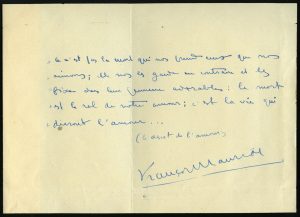 Ce n'est pas la mort qui nous prend ceux que nous
aimons ; elle nous les garde au contraire et les
fixe dans leur jeunesse adorable : la mort
est le sel de notre amour ; c'est la vie qui
dissout l'amour...
(Le désert de l'amour)
François Mauriac